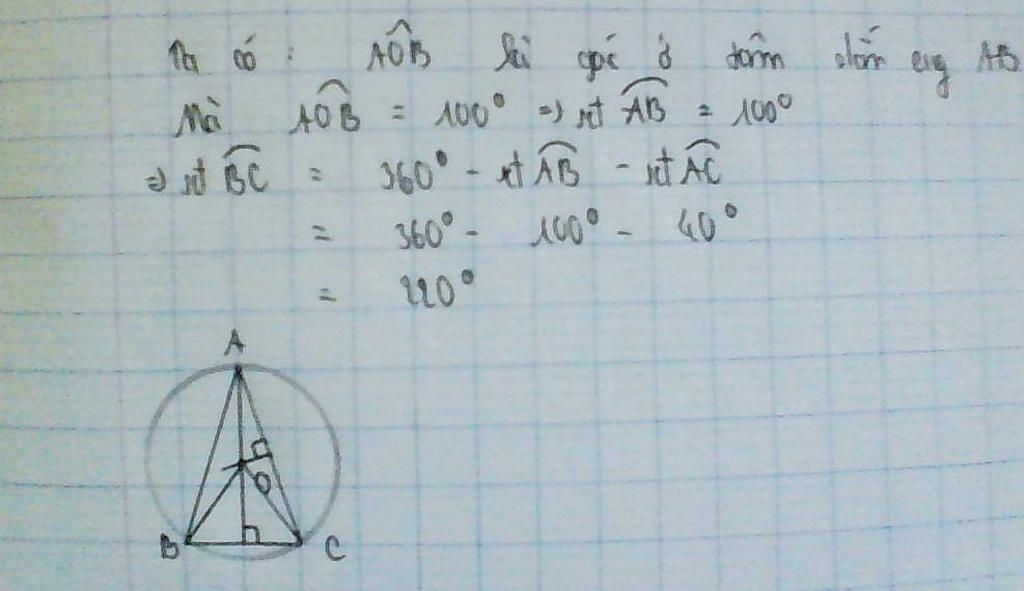 Ta có : AÔB là góc ở tâm chắn cung AB
Mà AÔB = 100° => sđ AB = 100°
=> sđ BC = 360° - sđ AB - sđ AC
= 360° - 100° - 40°
= 220°
A
O
B C